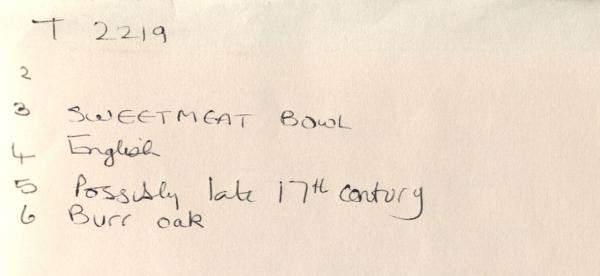 T 2219
2
3 SWEETMEAT BOWL
4 English
5 Possibly late 17th century
6 Burr oak